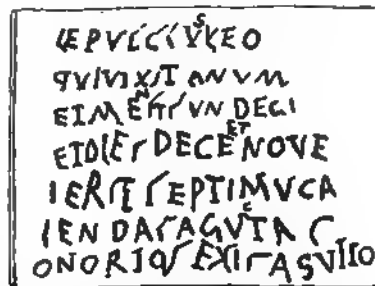 LEPVSCLVS LEO
QVIVIXIT ANVM
ETMENSIS VN DECI
ETDIES DECE ET NOVE
PERIT SEPTIMVCA
LENDASAGVSTAS
ONORIO